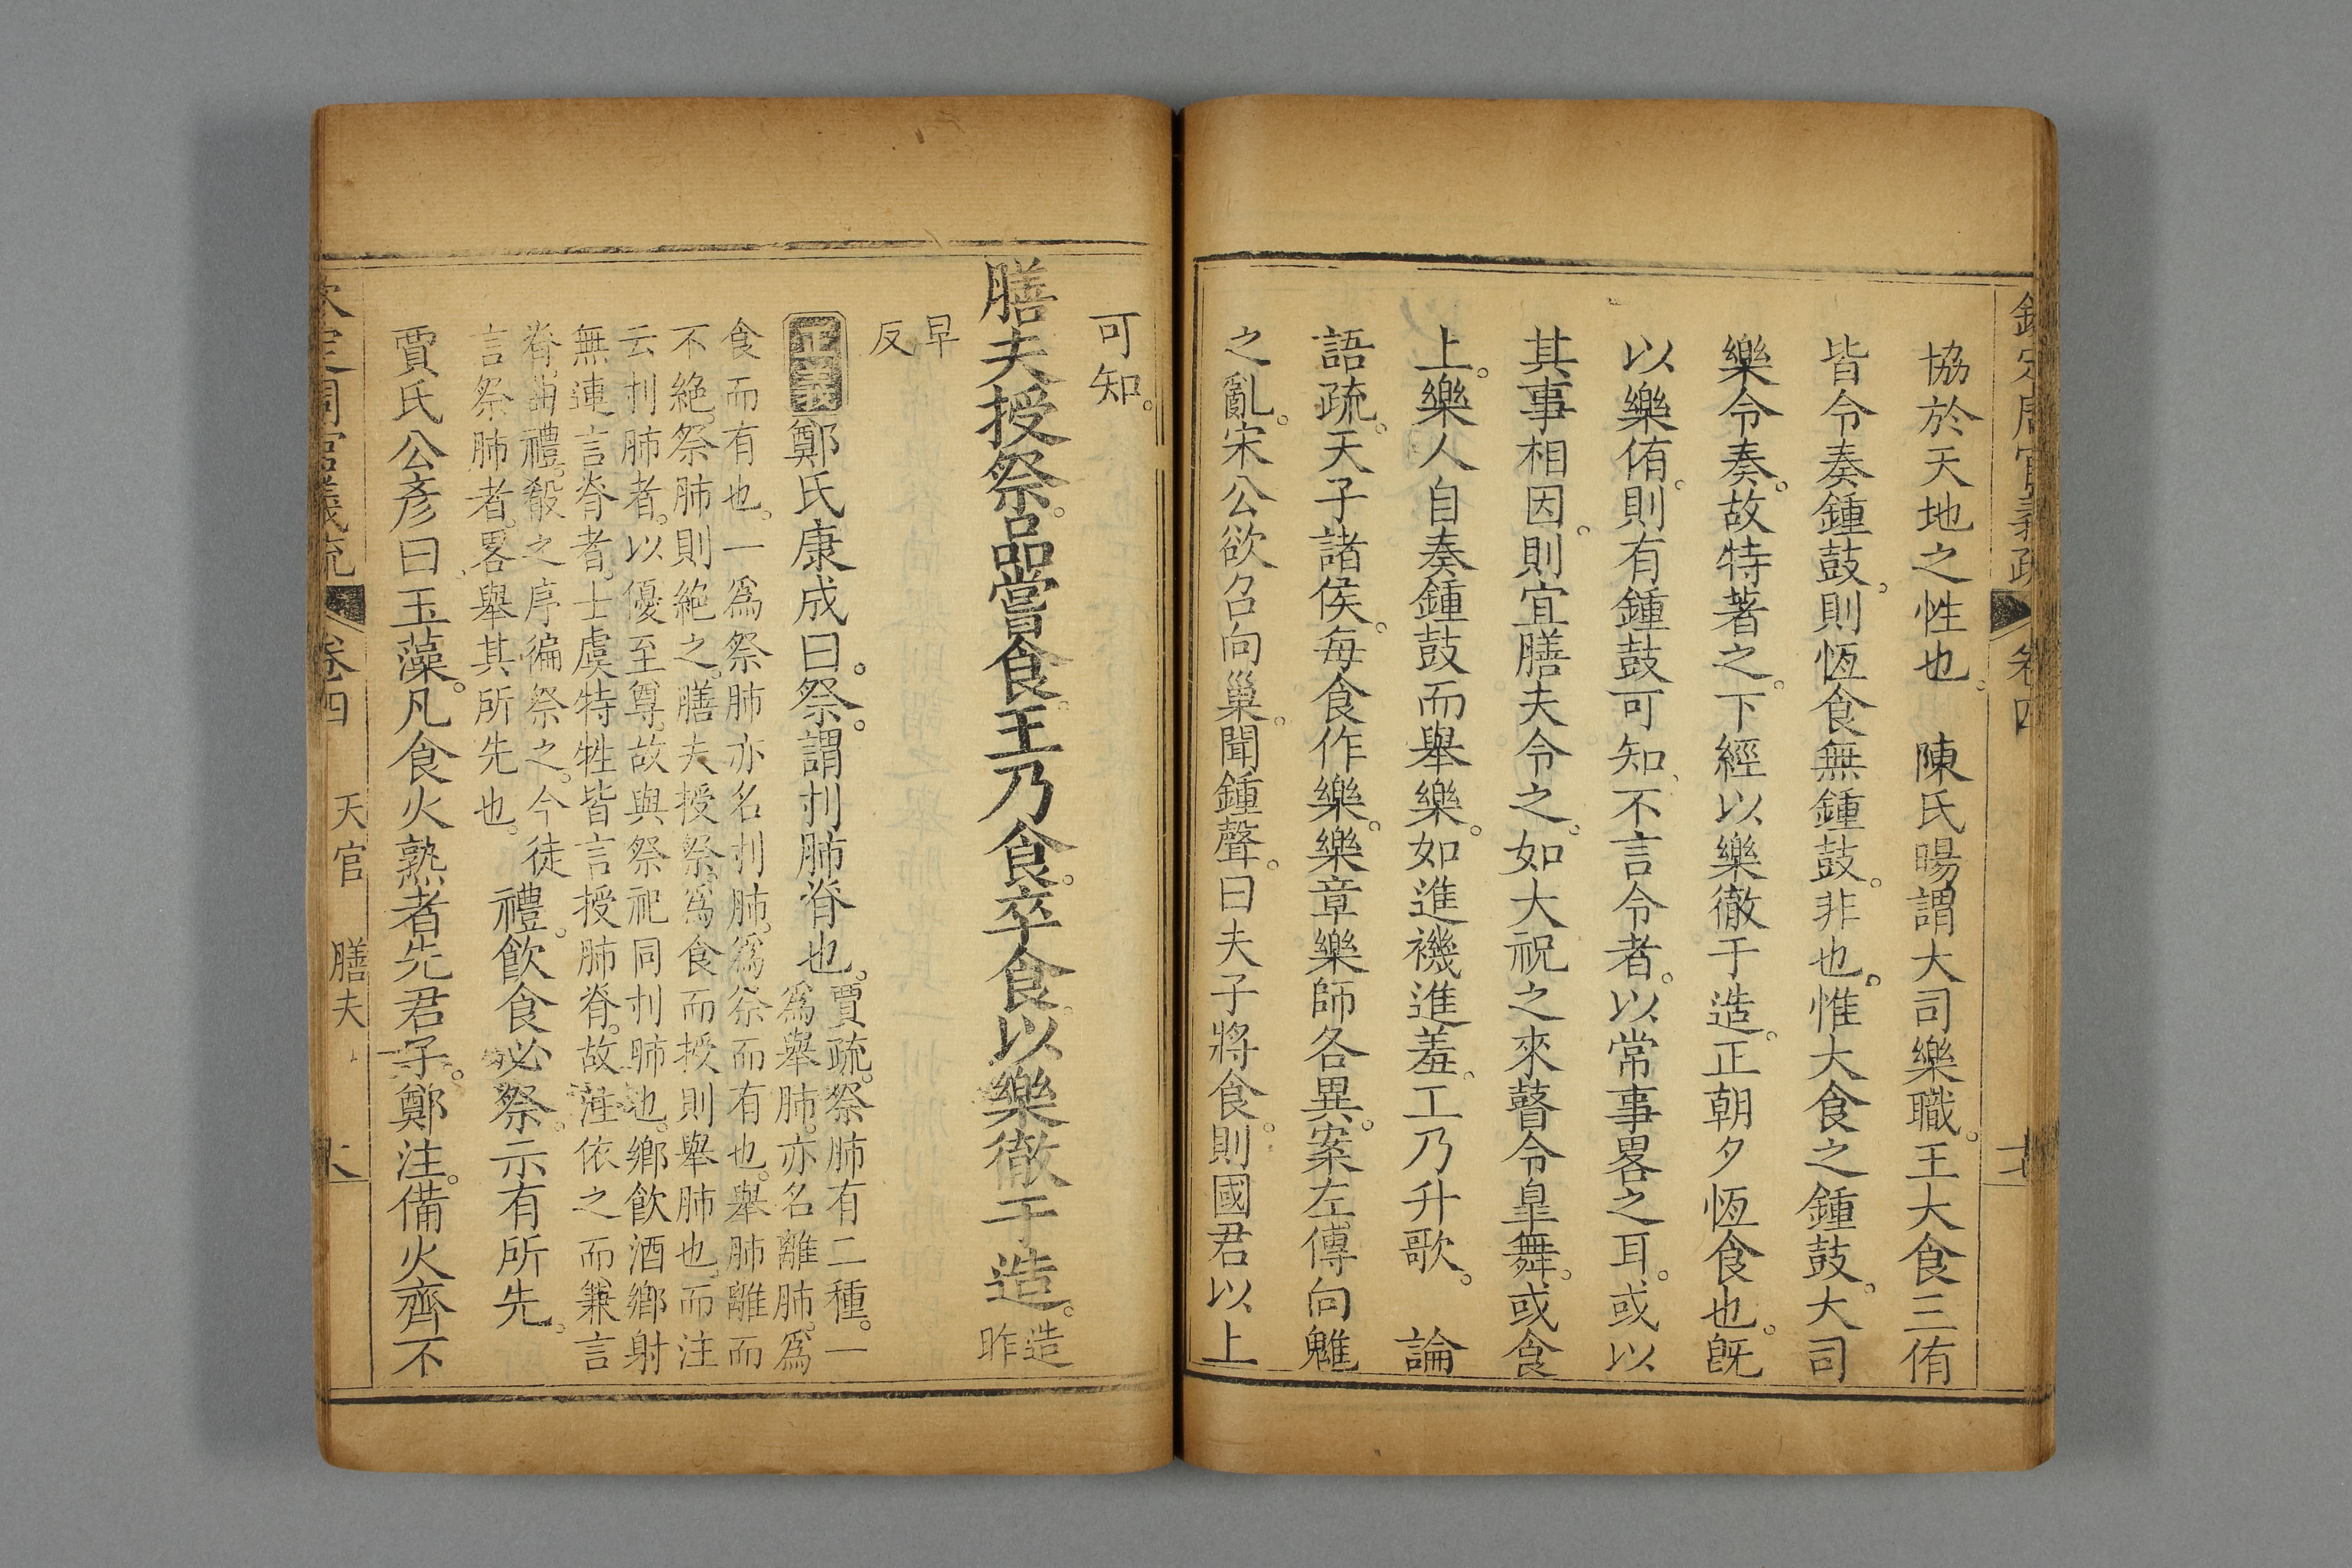 協於天地之性也。　陳氏暘謂大司樂職。王大食三侑
皆令奏鍾鼓。則恆食無鍾鼓。非也。惟大食之鍾鼓。大司
樂令奏。故特著之。下經以樂徹于造。正朝夕恆食也。旣
以樂侑。則有鍾鼓可知、不言令者。以常事畧之耳。或以
其事相因。則宜膳夫令之。如大祝之來瞽令臯舞。或食
上。樂人自奏鍾鼓而舉樂。如進禨進羞。工乃升歌。　論
語疏。天子諸侯。每食作樂。樂章樂師各異。案左傳向魋
之亂。宋公欲召向巢。聞鍾聲。曰夫子將食。則國君以上
可知。
膳夫授祭。品嘗食。王乃食。卒食。以樂徹于造。造
昨
早
反
正義鄭氏康成曰。祭。謂刌肺脊也。
賈疏。祭肺有二種。一
爲舉肺。亦名離肺。爲
食而有也。一爲祭肺亦名刌肺。爲祭而有也。舉肺離而
不絕。祭肺則絶之。膳夫授祭。爲食而授則舉肺也。而注
云刌肺者。以優至尊。故與祭祀同刌肺也。鄉飲酒鄉射
無連言脊者。士虞特牲皆言授肺脊。故注依之而兼言
脊。曲禮。殽之序徧祭之。今徒
言祭肺者。畧舉其所先也。
禮。飮食必祭。示有所先。
賈氏公彥曰。玉藻。凡食火熟者先君子。鄭注。備火齊不
欽定周官義疏　卷四
天官　膳夫